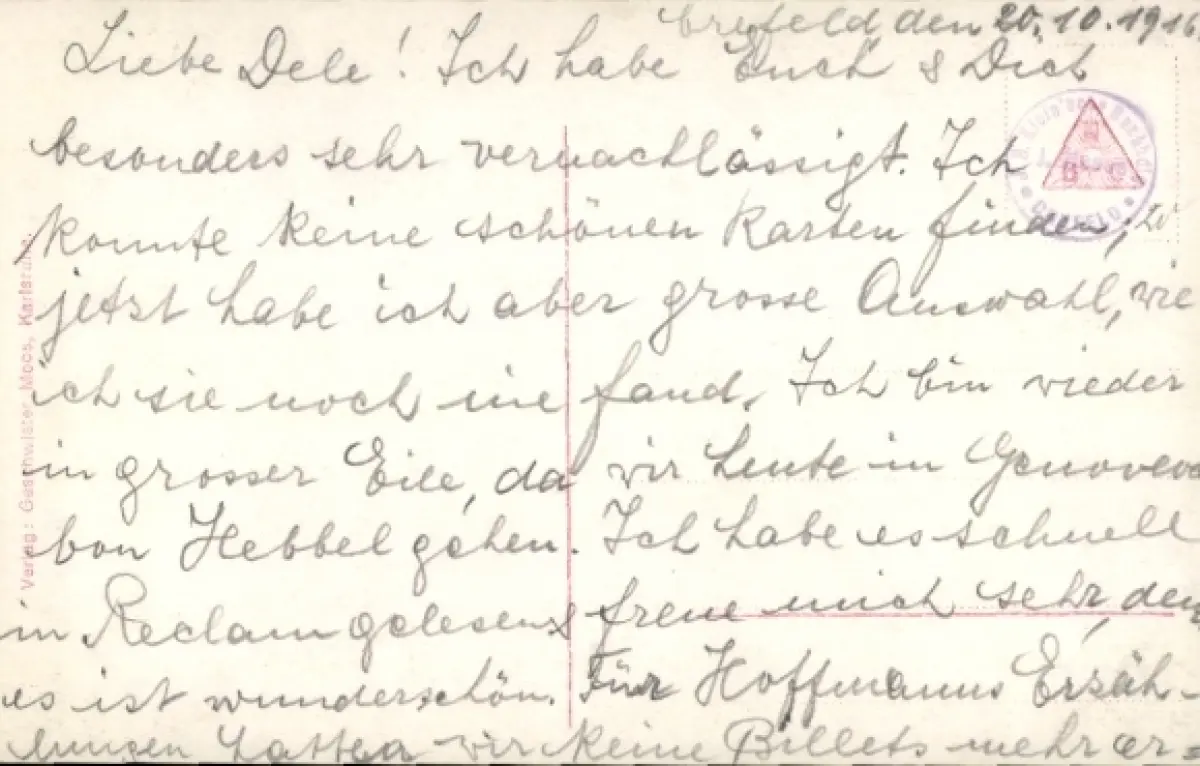 Crefeld den 20.10.1916
Liebe Dele! Ich habe Euch & Dich
besonders sehr vernachlässigt. Ich
konnte keine schönen Karten finden,
jetzt habe ich aber grosse Auswahl, wie
ich sie noch nie fand. Ich bin wieder
in grosser Eile, da wir heute in Genoveva
von Hebbel gehen. Ich habe es schnell
in Reclam gelesen & freue mich sehr, denn
es ist wunderschön. Für Hoffmanns Erzäh-
lungen hatten wir keine Billets mehr er-
Verlag: Geschwister Moos, Karlsruhe.
CREFELD